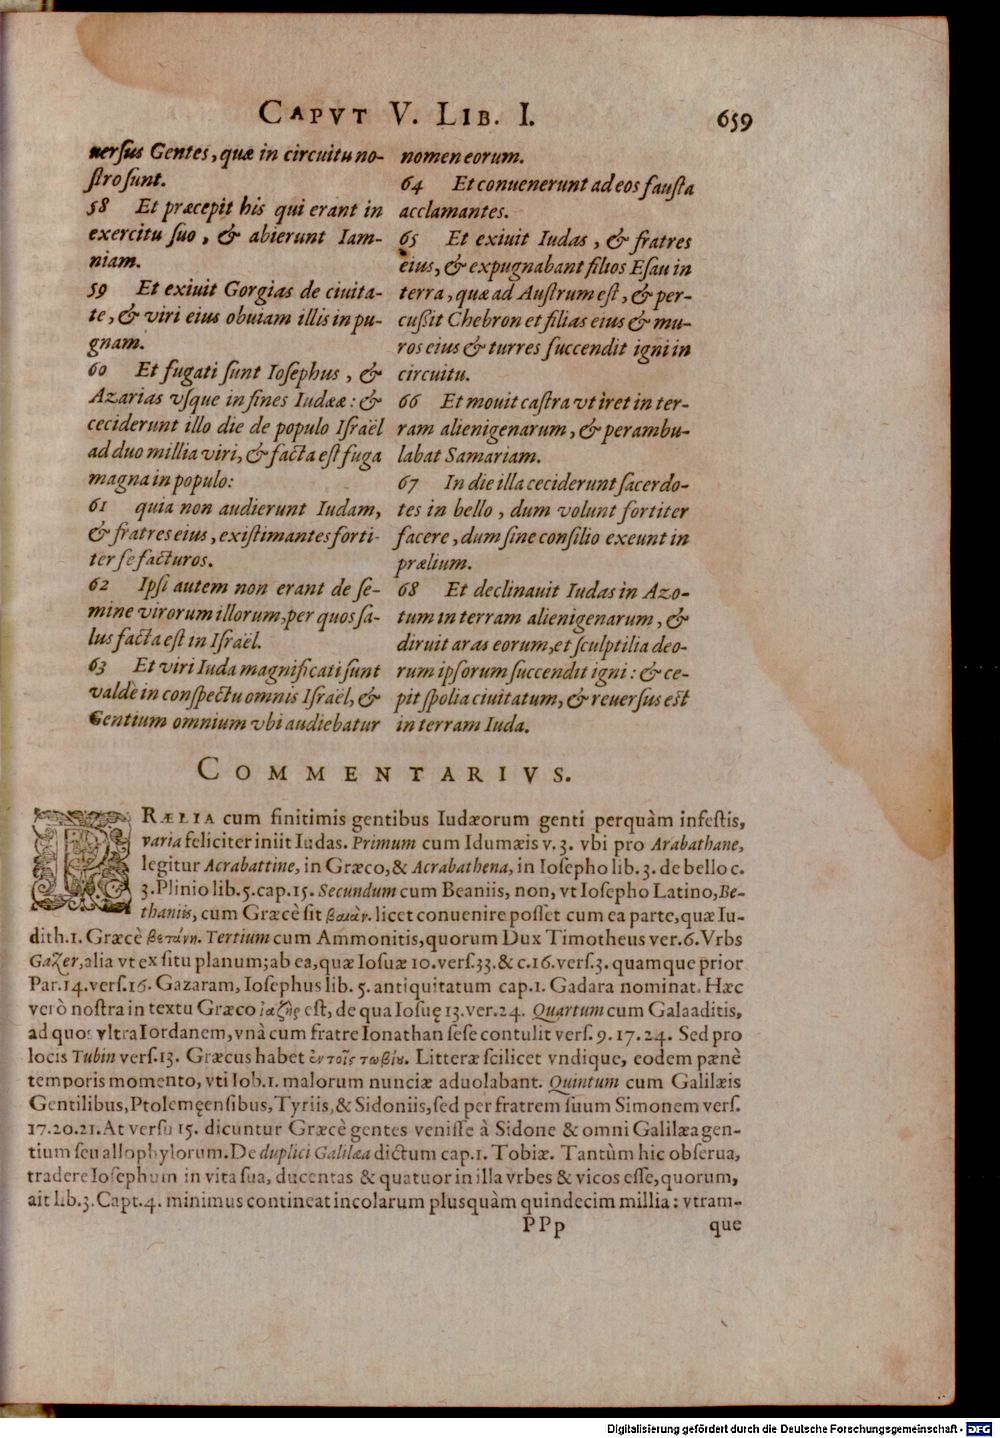 CAPVT V. LIB. I.
659
uersus Gentes, quæ in circuitu no-
stro sunt.
58 Et præcepit his qui erant in
exercitu suo, & abierunt Iam-
niam.
59 Et exiuit Gorgias de ciuita-
te, & viri eius obuiam illis in pu-
gnam.
60 Et fugati sunt Iosephus, &
Azarias vsque in fines Iudææ: &
ceciderunt illo die de populo Israël
ad duo millia viri, & facta est fuga
magna in populo:
61 quia non audierunt Iudam,
& fratres eius, existimantes forti-
ter se facturos.
62 Ipsi autem non erant de se-
mine virorum illorum, per quos sa-
lus facta est in Israël.
63 Et viri Iuda magnificati sunt
valdè in conspectu omnis Israël, &
Gentium omnium vbi audiebatur
nomen eorum.
64 Et conuenerunt ad eos fausta
acclamantes.
65 Et exiuit Iudas, & fratres
eius, & expugnabant filios Esau in
terra, quæ ad Austrum est, & per-
cußit Chebron et filias eius & mu-
ros eius & turres succendit igni in
circuitu.
66 Et mouit castra vt iret in ter-
ram alienigenarum, & perambu-
labat Samariam.
67 In die illa ceciderunt sacerdo-
tes in bello, dum volunt fortiter
facere, dum sine consilio exeunt in
prælium.
68 Et declinauit Iudas in Azo-
tum in terram alienigenarum, &
diruit aras eorum, et sculptilia deo-
rum ipsorum succendit igni: & ce-
pit spolia ciuitatum, & reuersus est
in terram Iuda.
COMMENTARIVS.
PRÆLIA cum finitimis gentibus Iudæorum genti perquàm infestis,
varia feliciter iniit Iudas. Primum cum Idumæis v. 3. vbi pro Arabathane,
legitur Acrabattine, in Græco, & Acrabathena, in Iosepho lib. 3. de bello c.
3. Plinio lib. 5. cap. 15. Secundum cum Beaniis, non, vt Iosepho Latino, Be-
thaniis, cum Græcè sit βαιάν. licet conuenire posset cum ea parte, quæ Iu-
dith. 1. Græcè βετάνη. Tertium cum Ammonitis, quorum Dux Timotheus ver. 6. Vrbs
Gazer, alia vt ex situ planum; ab ea, quæ Iosuæ 10. vers. 33. & c. 16. vers. 3. quamque prior
Par. 14. vers. 16. Gazaram, Iosephus lib. 5. antiquitatum cap. 1. Gadara nominat. Hæc
verò nostra in textu Græco ἰαζὴρ est, de qua Iosuę 13. ver. 24. Quartum cum Galaaditis,
ad quos vltra Iordanem, vnà cum fratre Ionathan sese contulit vers. 9. 17. 24. Sed pro
locis Tubin vers. 13. Græcus habet ἐν τοῖς τωβίν. Litteræ scilicet vndique, eodem pænè
temporis momento, vti Iob. 1. malorum nunciæ aduolabant. Quintum cum Galilæis
Gentilibus, Ptolemęensibus, Tyriis, & Sidoniis, sed per fratrem suum Simonem vers.
17. 20. 21. At versu 15. dicuntur Græcè gentes venisse à Sidone & omni Galilæa gen-
tium seu allophylorum. De duplici Galilæa dictum cap. 1. Tobiæ. Tantùm hic obserua,
tradere Iosephum in vita sua, ducentas & quatuor in illa vrbes & vicos esse, quorum,
ait lib. 3. Capt. 4. minimus contineat incolarum plusquàm quindecim millia: vtram-
PPp
que
Digitalisierung gefördert durch die Deutsche Forschungsgemeinschaft - DFG